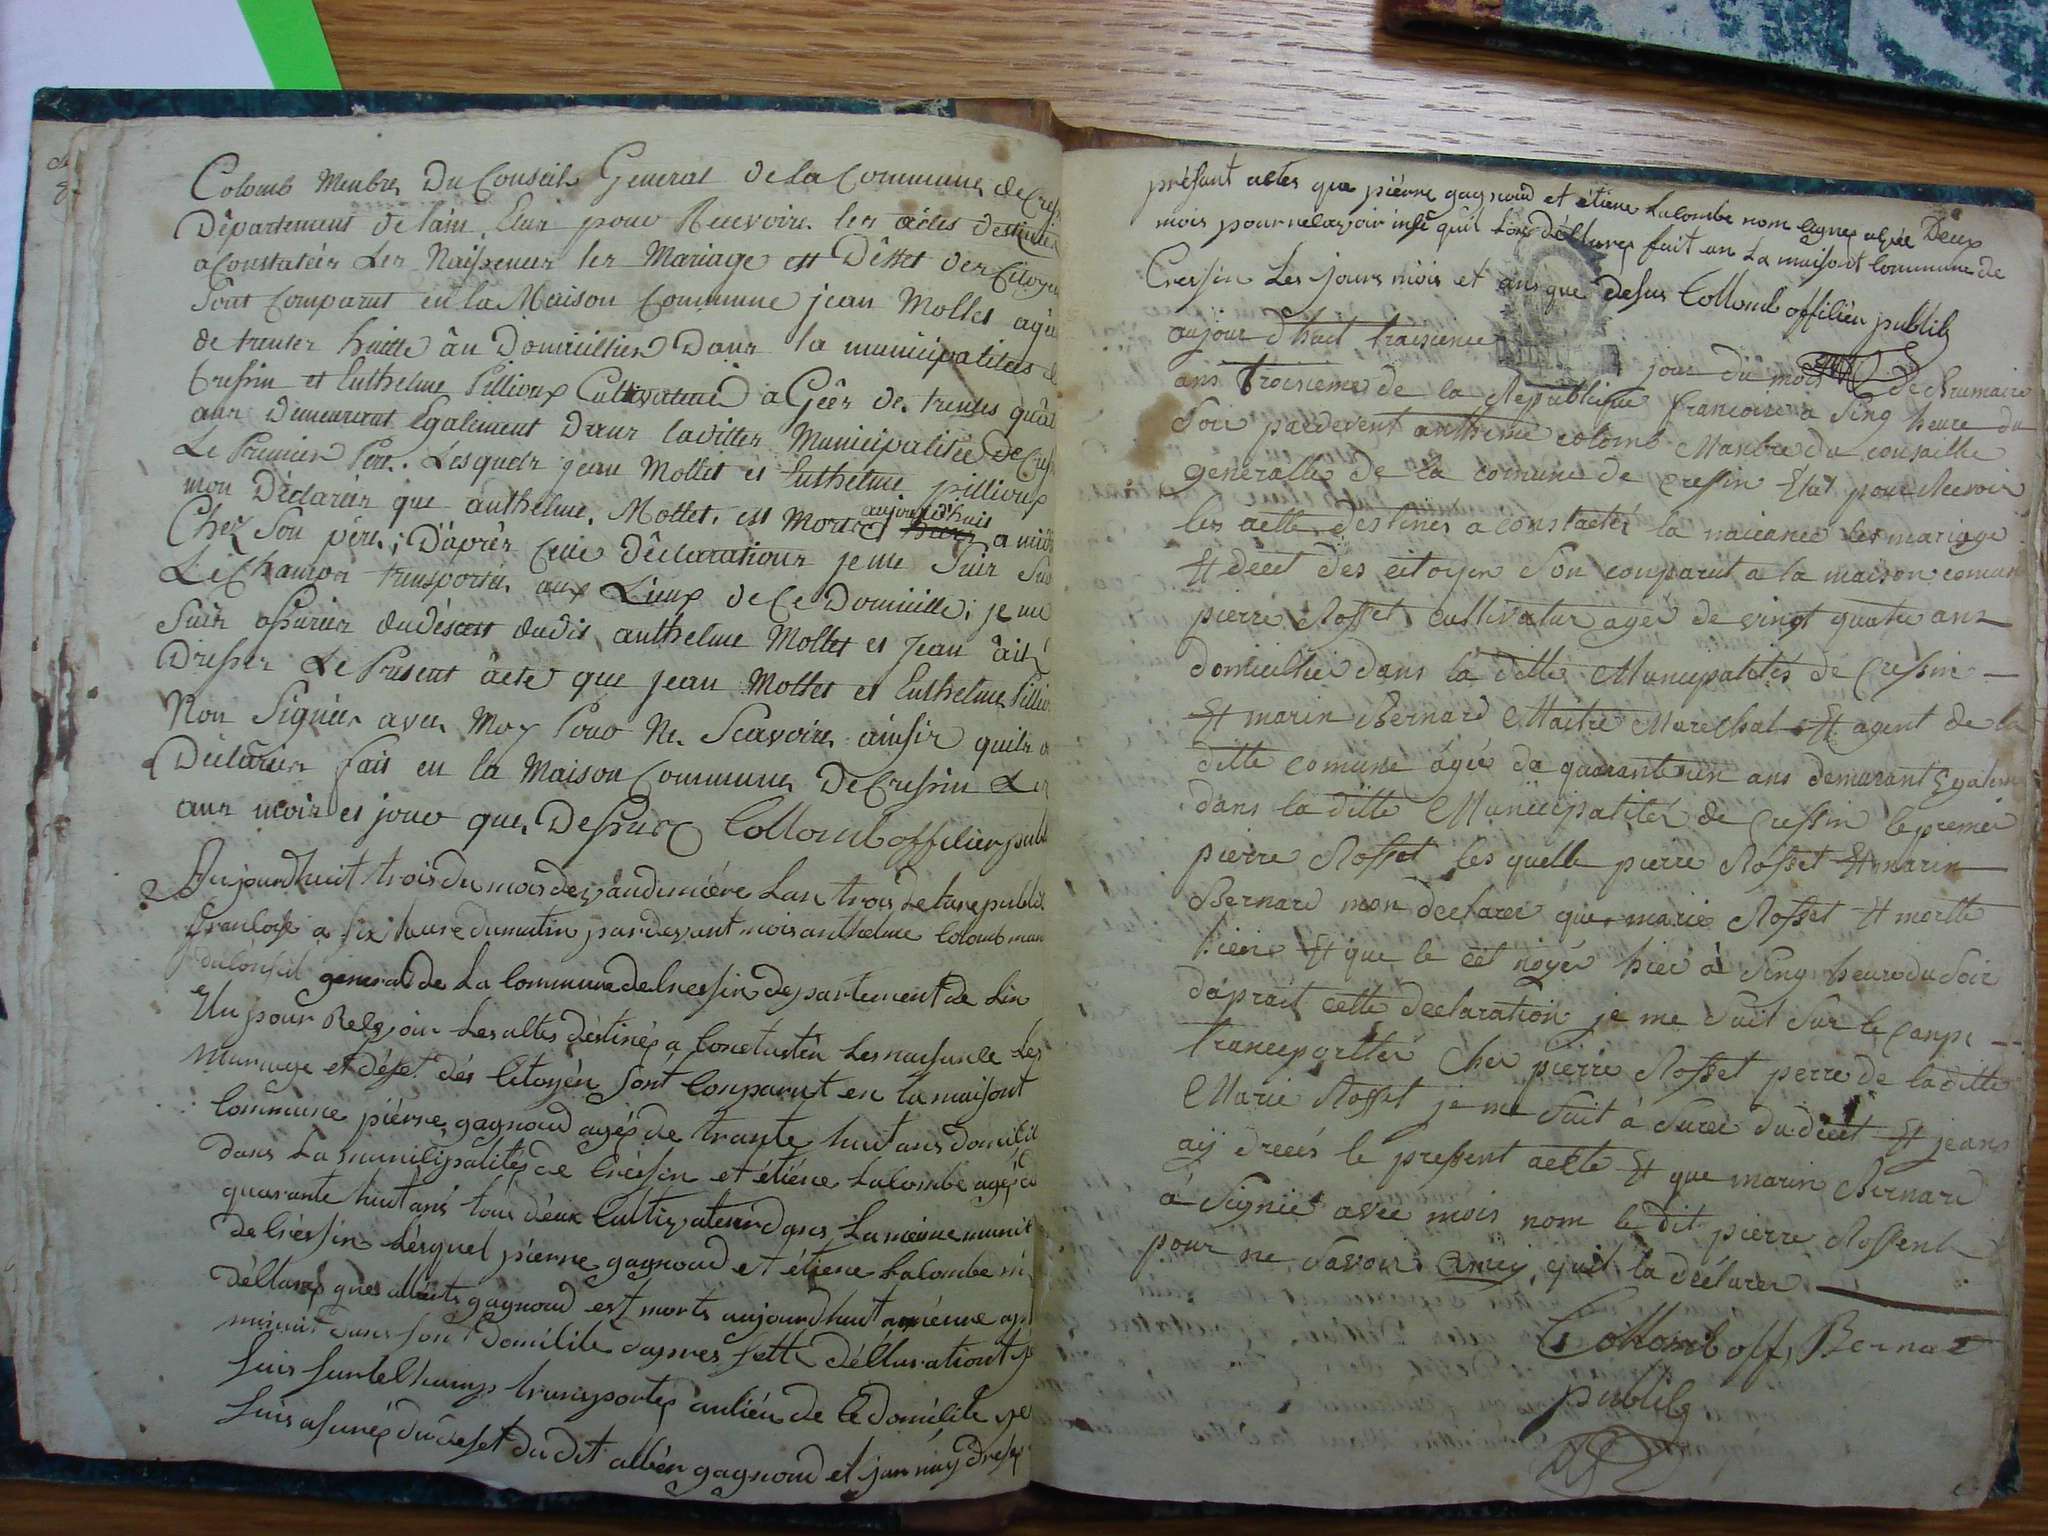 Colomb Membre Du Conseil General de la Commune de Cress
Département de lain, Elui pour Recevoir les actes destinés
a Constatéer Les Naissences les Mariage et Déses des Citoyens
Sont Comparut en la Maison Commune jean Mollet agée
de trenter huitte ân Domicillier Dans la municipalitées
Cressin et Enthelme Pillioux Cultivateur a Gées de trentes quât
ans Demeurant Egalement Dans laditte Municipalitée De Cress
Le Premier Pere. Lesquels jean Mollet et Enthelme pillioux
mon Déclarées que anthelme. Mollet. est Morte aujourd'huis hiere a midi
Chez Son pere; D'aprés Cette Déclarations je me Suis Sur
Le Champs transportée aux Lieux de Ce Domicille; je me
Suis assurées dudésest dudis anthelme Mollet et Jean âit
Dresser Le Present âcte que jean Mollet et Enthelme Pilliou
Non Signées avec Moy Pour Ne Scavoire ainsis quils
Déclarées fais en la Maison Commune De Cressin Les
ans mois et jour que Dessus Collomb offilier publ
Aujourdhuit trois du mois de vandémiére Lan trois de La republi
francoise a six heure du matin pardevant mois anthelme Colomb man
du Conseil general de La Commune de Cressin departement de Lin
Elu pour Relevoir Les altes déstinés a Constastéu Les naissanse Les
Mariage et déset dés Citoyén sont Conparut en La maisont
Commune piérre gagnoud agés de trante huit ans domicil
dans La municipalités de Créssin et étiéne Lacombe agés
quarante huit ans tous deux Cultivateur dans La méme munic
de Créssin Lésquel piérre gagnoud et étiene Lalombe m
déllarés que albert gagnoud est morts aujourdhuit
minuit dans sont domilile dapres sette déllarationt je
suis sur le Champ transportes au lieu de le domélile je
suis asurés du déset du dit albén gagnoud et jan naiy dressé
présant actes que piérre gagnoud et étiene Lalombe nom signés alvée Deux
mois pour ne lavoir insi quil Lons déllares fait an La maisont Commune de
Cressin Les jours mois et ans que desus Collomb offilièr publilz
aujour dhuit traisieme jour du mois de Brumaire
ans troisieme de la Republique francoise a Sinq heure du
Soir pardevent anthelme colomb Manbre du consaille
generalle de la comune de cressin Elut pour Recevoir
les aette destines a constacter la naicance les mariage
Et décet des citoyen Son conparut a la maison comun
pierre Rosset cultivatur agér de vingt quatre ans
domiciltiée dans la ditte Municipalités de Cressin
Et marin Bernard Maitre Marechal Et agent de la
ditte comune âgée de quarante un ans demurant Egalem
dans la ditte Municipalités de Cressin le premier
pierre Rosset les quelle pierre Rosset Et marin
Bernard mon declarer que marie Rosset Et mortte
hiere Et que le cet noyér hier â Sinq heure du Soir
daprait cette declaration je me Suit Sur le Canps
trancportter Cher pierre Rosset perre de la ditte
Marie Rosset je me Suit â Suree du décet Et jeans
aij drecés le pressent aette Et que marin Bernard
â Signié avec mois nom le dit pierre Rossent
pour ne Savoir ainciy quil la declarer
Collomb off Bernar
publilz